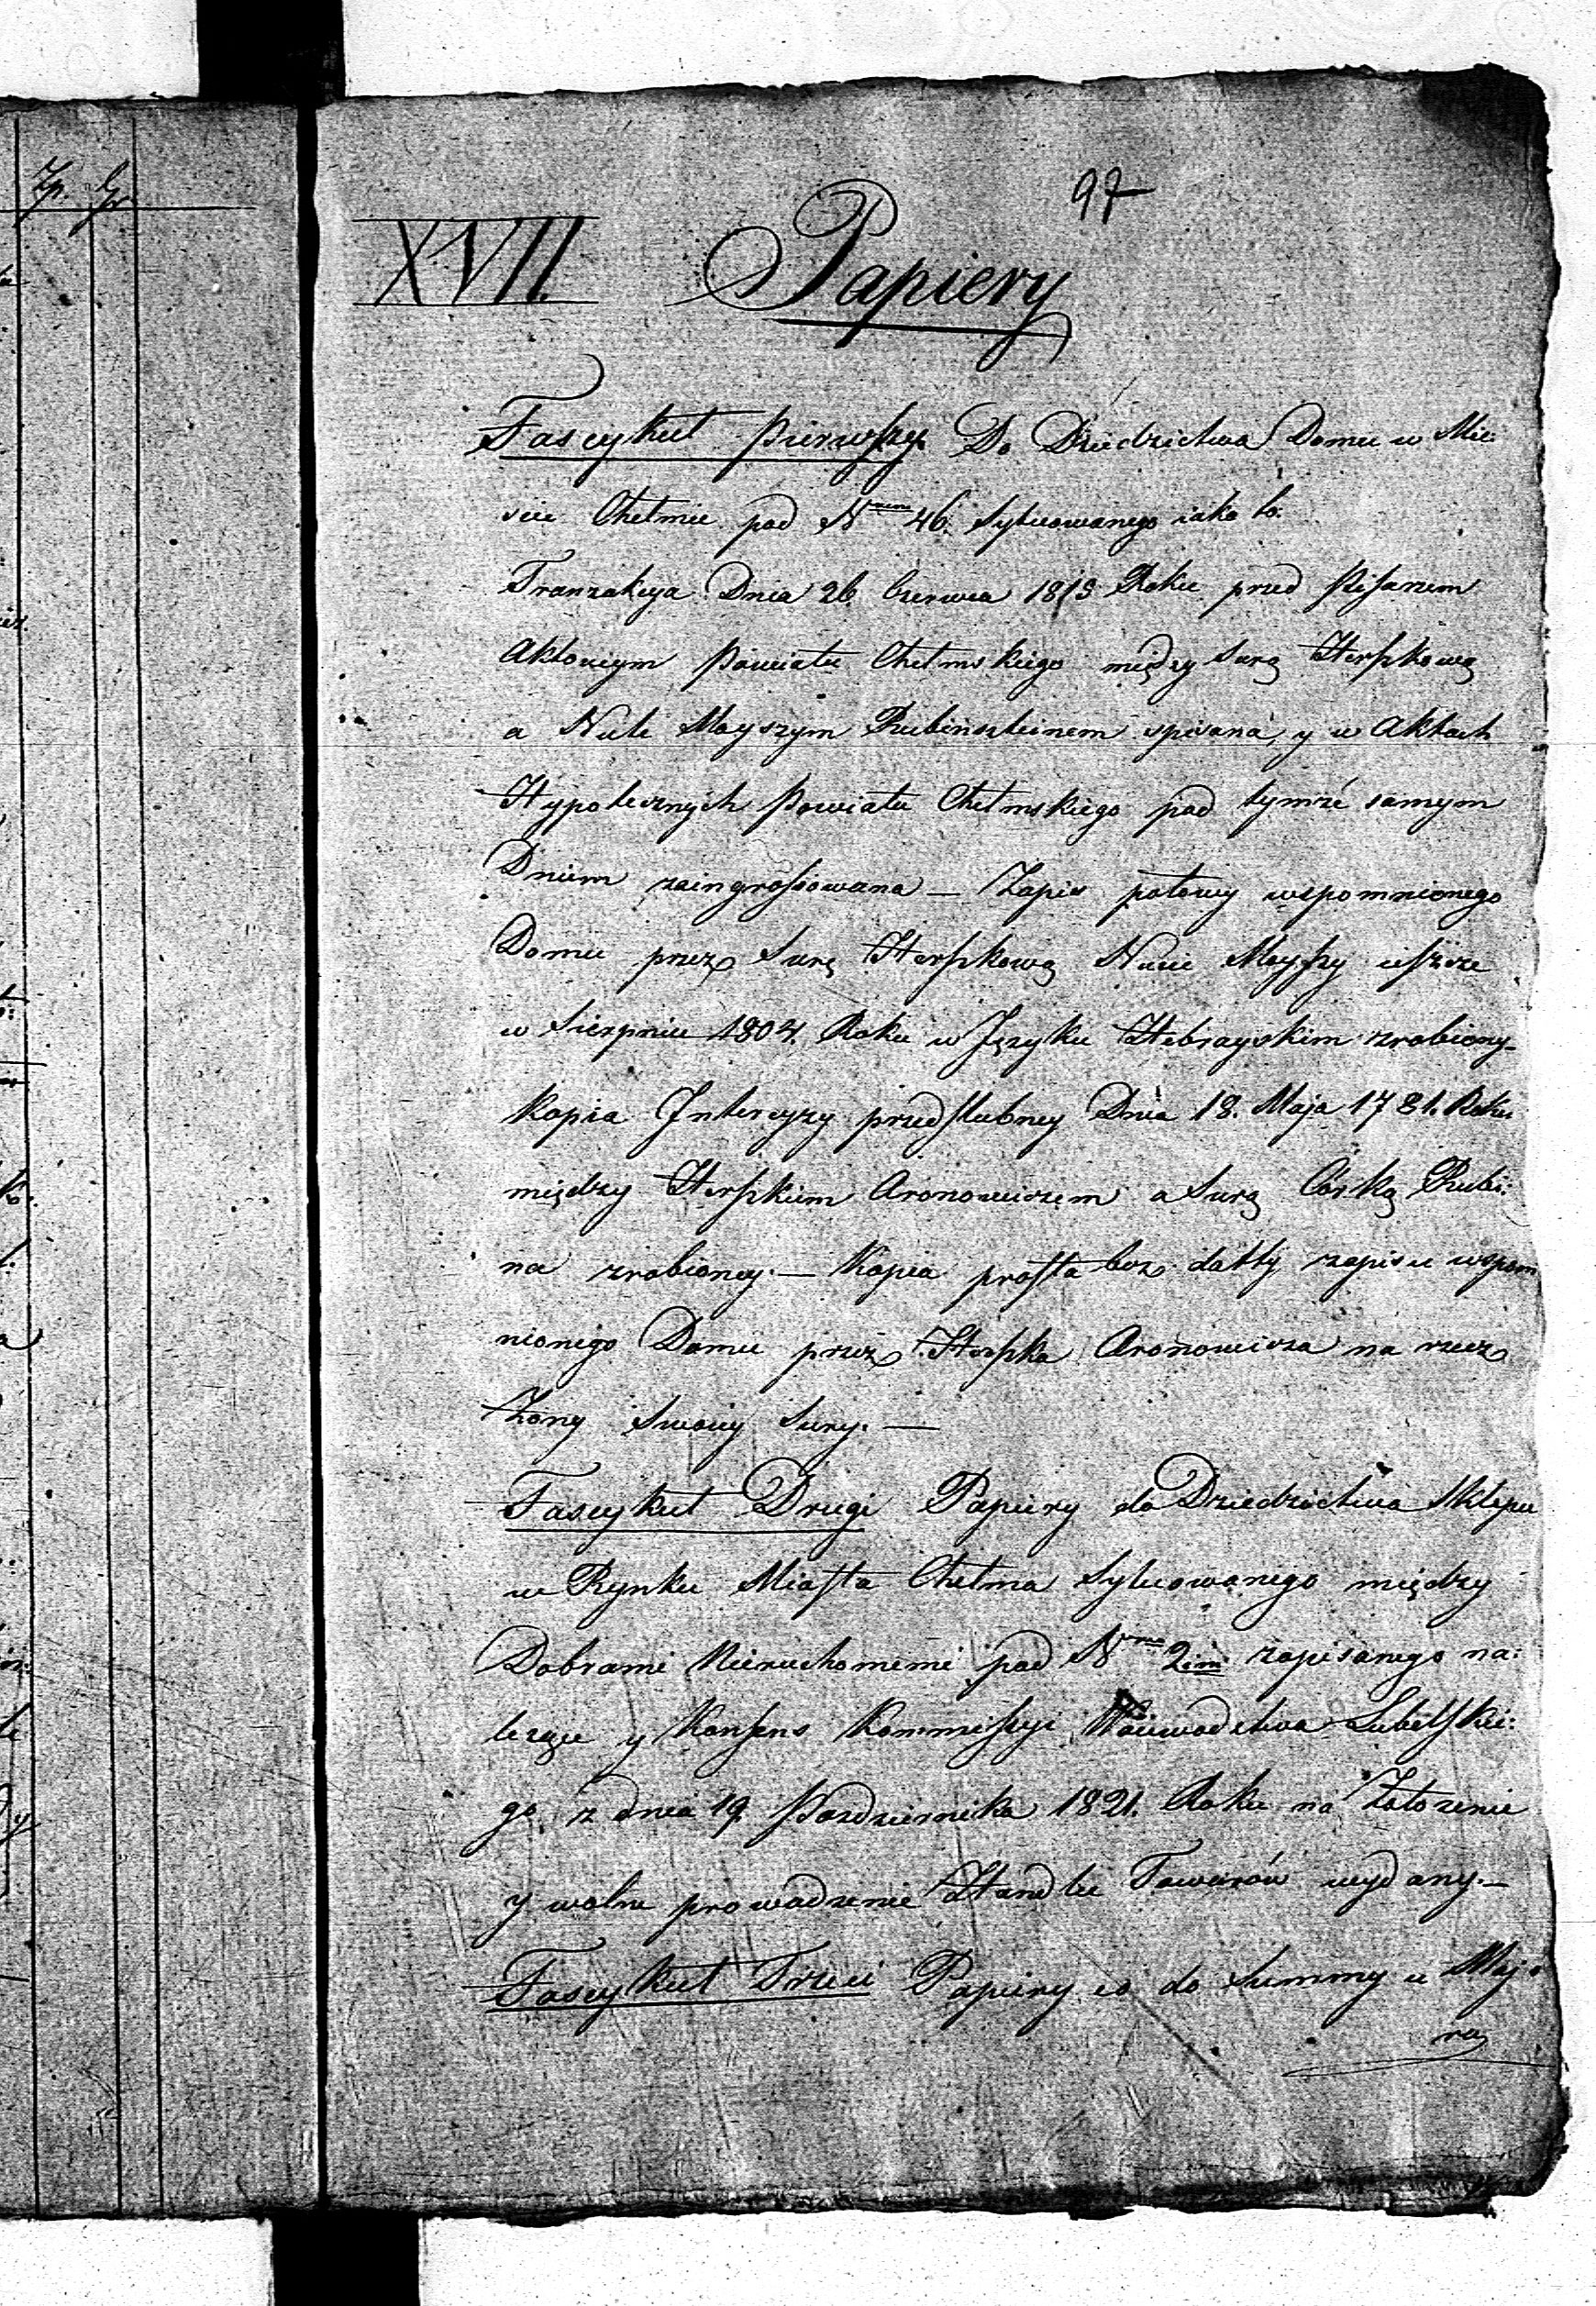 Zp. Gr.
97
XVII. Papiery
Fascykuł pierwszy. Do Dziedzictwa Domu w Mie:
scie Chełmie pod Nrem 46. sytuowanego iako to:
Tranzakcya Dnia 26. Czerwca 1819 Roku przed Pisarzem
Aktowym Powiatu Chełmskiego między Surą Herszkową
a Nute Moyszym Rubinszteinem spisana, y w Aktach
Hypotecznych Powiatu Chełmskiego pod tymże samym
Dniem zaingrossowana — Zapis połowy wspomnionego
Domu przez Surę Herszkową Nucie Moyszy ieszcze
w Sierpniu 1804. Roku w Języku Hebrayskim zrobiony —
Kopia Intercyzy przedslubney Dnia 18. Maja 1781. Roku
między Herszkiem Aronowiczem a Surą Córką Rubi:
na zrobioney. — Kopia prosta bez datty zapisu wspom
nionego Domu przez Herszka Aronowicza na rzecz
Żony swoiey Sury. —
Fascykuł Drugi Papiery do Dziedzictwa Sklepu
w Rynku Miasta Chełma sytuowanego między
Dobrami Nieruchomemi pod Nrem 2im zapisanego na:
leżące y Konsens Kommissyi Woiewodztwa Lubelskie:
go z dnia 19. Pazdziernika 1821. Roku na Założenie
y wolne prowadzenie Handlu Towarów wydany. —
Fascykuł Trzeci Papiery co do Summy u Maj:
ra